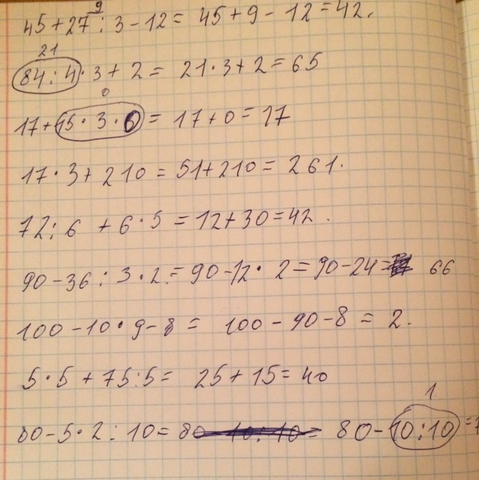 9
45+27:3-12= 45+9-12=42.
21
84:4·3+2= 21·3+2=65
0
17+15·3·0= 17+0=17
17·3+210=51+210=261.
72:6+6·5=12+30=42.
90-36:3·2=90-12·2=90-24= 66
100-10·9-8= 100-90-8=2.
5·5+75:5= 25+15=40
1
80-5·2:10= 80-10:10= 80-10:10=